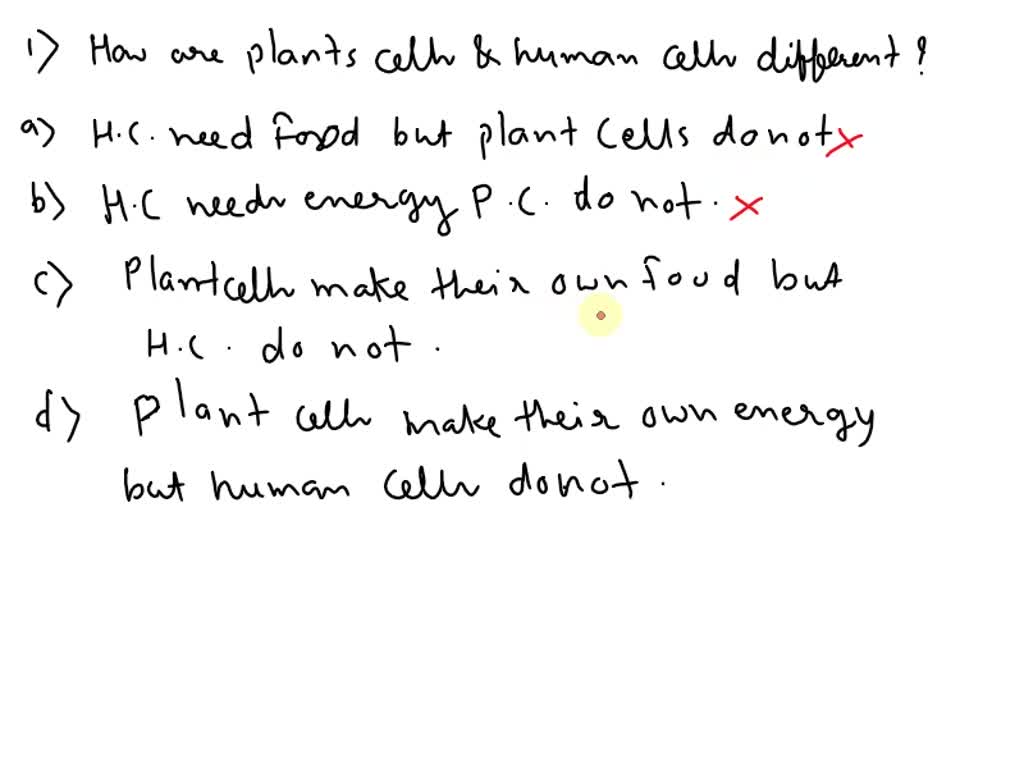 1) How are plants cells & human cells different?
a) H.C. need food but plant cells do not x
b) H.C needs energy P.C. do not. x
c) Plant cells make their own food but
H.C. do not.
d) Plant cells make their own energy
but human cells do not.